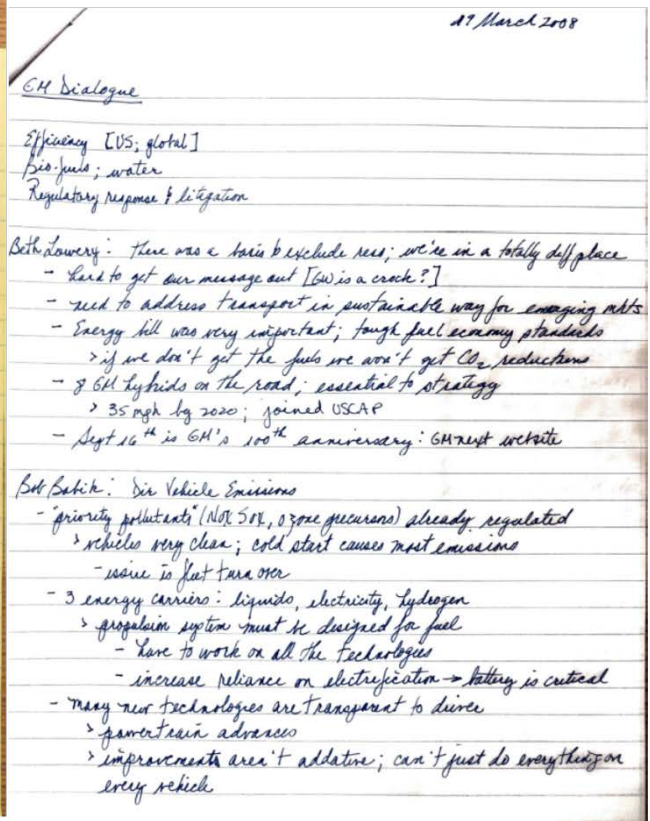 19 March 2008
GM Dialogue
Efficiency [US; global]
Bio-fuels; water
Regulatory response & litigation
Beth Lowery: there was a basis to exclude ; we're in a totally diff place
- hard to get our message out [GW is a crock?]
- need to address transport in sustainable way for emerging mkts
- Energy bill was very important; tough fuel economy standards
> if we don't get the fuels we won't get CO2 reductions
- 8 GM hybrids on the road; essential to strategy
> 35 mgh by 2020; joined USCAP
- Sept 16th is GM's 100th anniversary: GMnext website
Bob Babik: Dir Vehicle Emissions
- "priority pollutants" (NOx SOx, ozone precursors) already regulated
> vehicles very clean; cold start causes most emissions
- issue is fleet turn over
- 3 energy carriers: liquids, electricity, hydrogen
> propulsion system must be designed for fuel
- have to work on all the technologies
- increase reliance on electrification → battery is critical
- many new technologies are transparent to driver
> powertrain advances
> improvements aren't addative; can't just do everything on
every vehicle